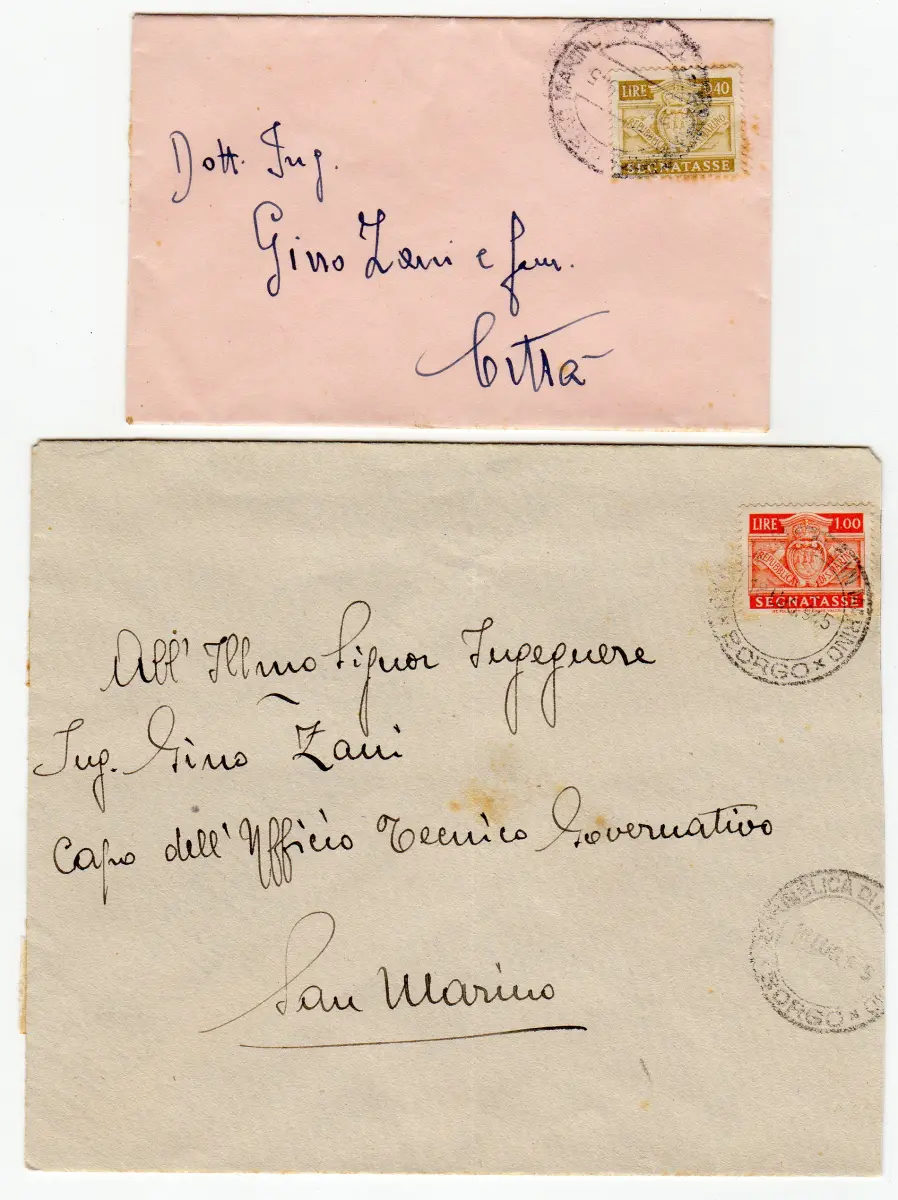 LIRE 0.40
REPUBBLICA DI S. MARINO
SEGNATASSE
Dott. Ing.
Gino Zani e fam.
Città
LIRE 1.00
REPUBBLICA DI S. MARINO
SEGNATASSE
BORGO
All' Illmo Signor Ingegnere
Ing. Gino Zani
Capo dell' Ufficio Tecnico Governativo
San Marino
BORGO